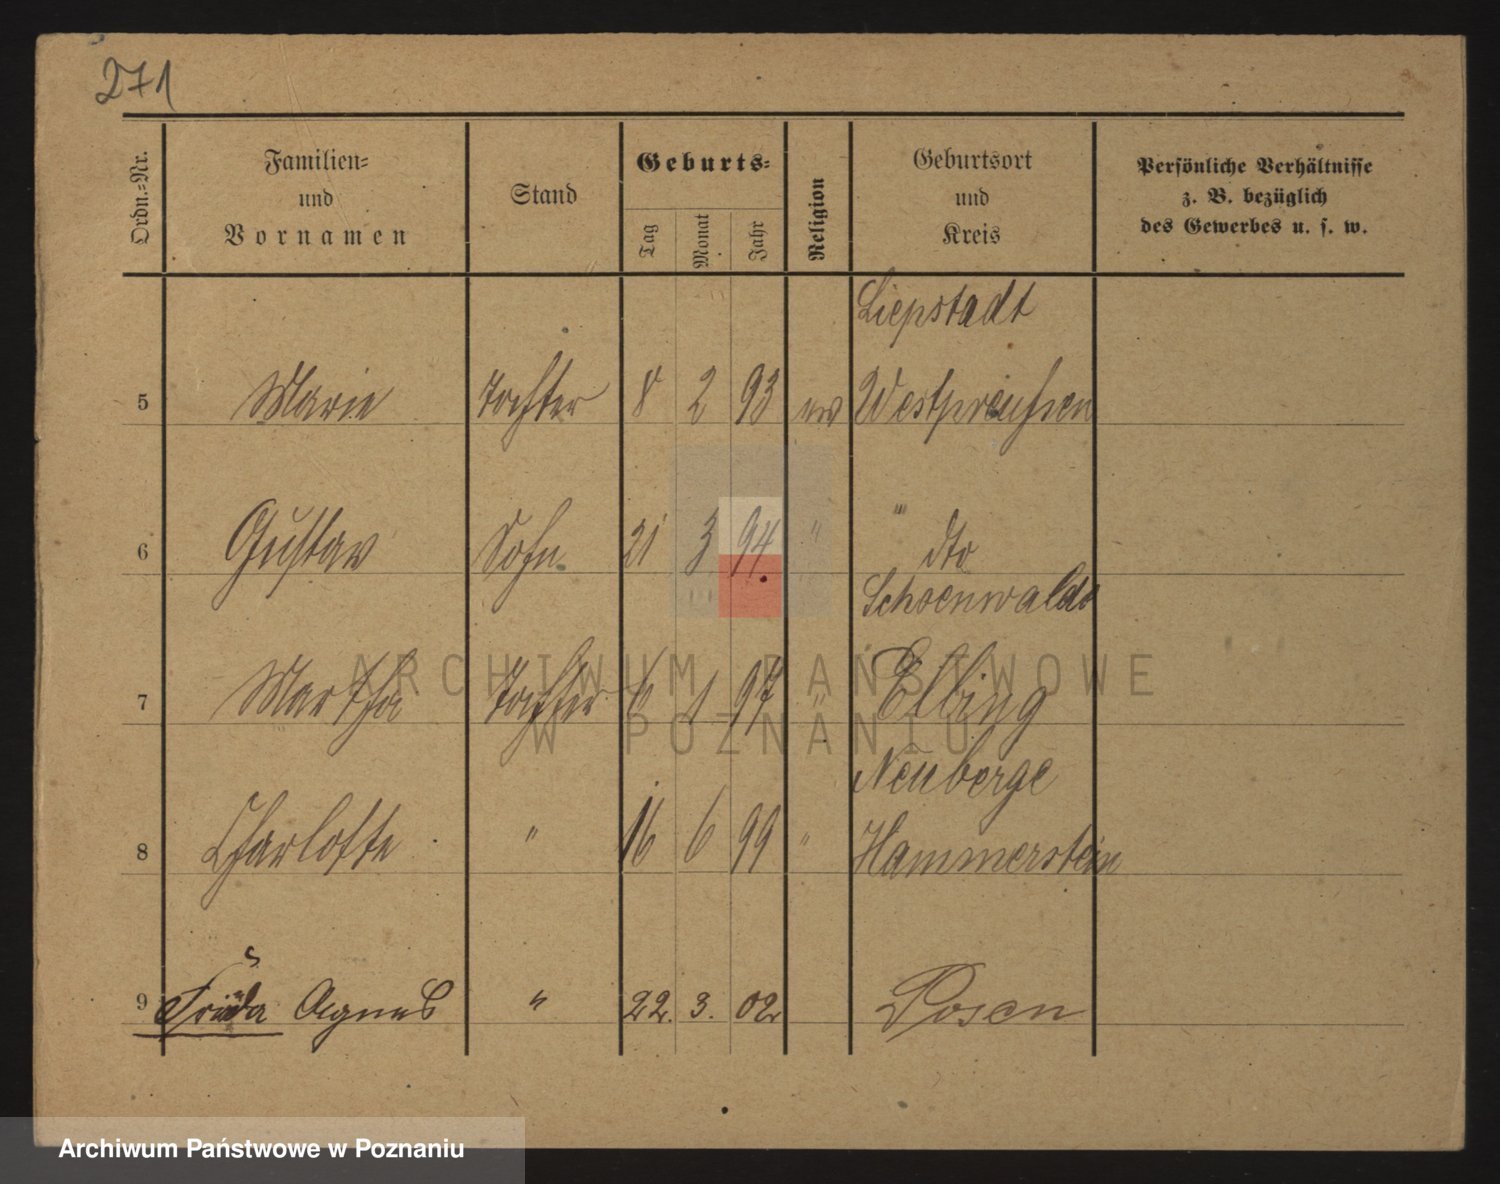 271
Ordn.-Nr.
Familien-
und
Vornamen
Stand
Geburts-
Tag
Monat
Jahr
Religion
Geburtsort
und
Kreis
Persönliche Verhältnisse
z. B. bezüglich
des Gewerbes u. s. w.
Liepstadt
5 Marie Tochter 8 2 93 ev Westpreußen
6 Gustav Sohn 21 3 94 " " dto
Schoenwalde
7 Martha Tochter 6 1 97 " Elbing
Neuberge
8 Charlotte " 16 6 99 " Hammerstein
9 Frieda Agnes " 22. 3. 02 Posen
ARCHIWUM PAŃSTWOWE
W POZNANIU
Archiwum Państwowe w Poznaniu